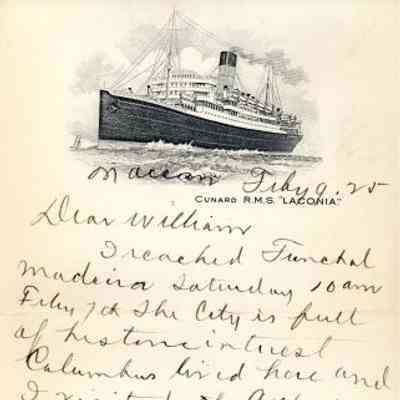 Feby 9. 25
CUNARD R.M.S. "LACONIA"
Dear William
I reached Funchal
Madeira Saturday 10 am
Feby 7th The City is full
of historic interest
Columbus lived here and
I visited